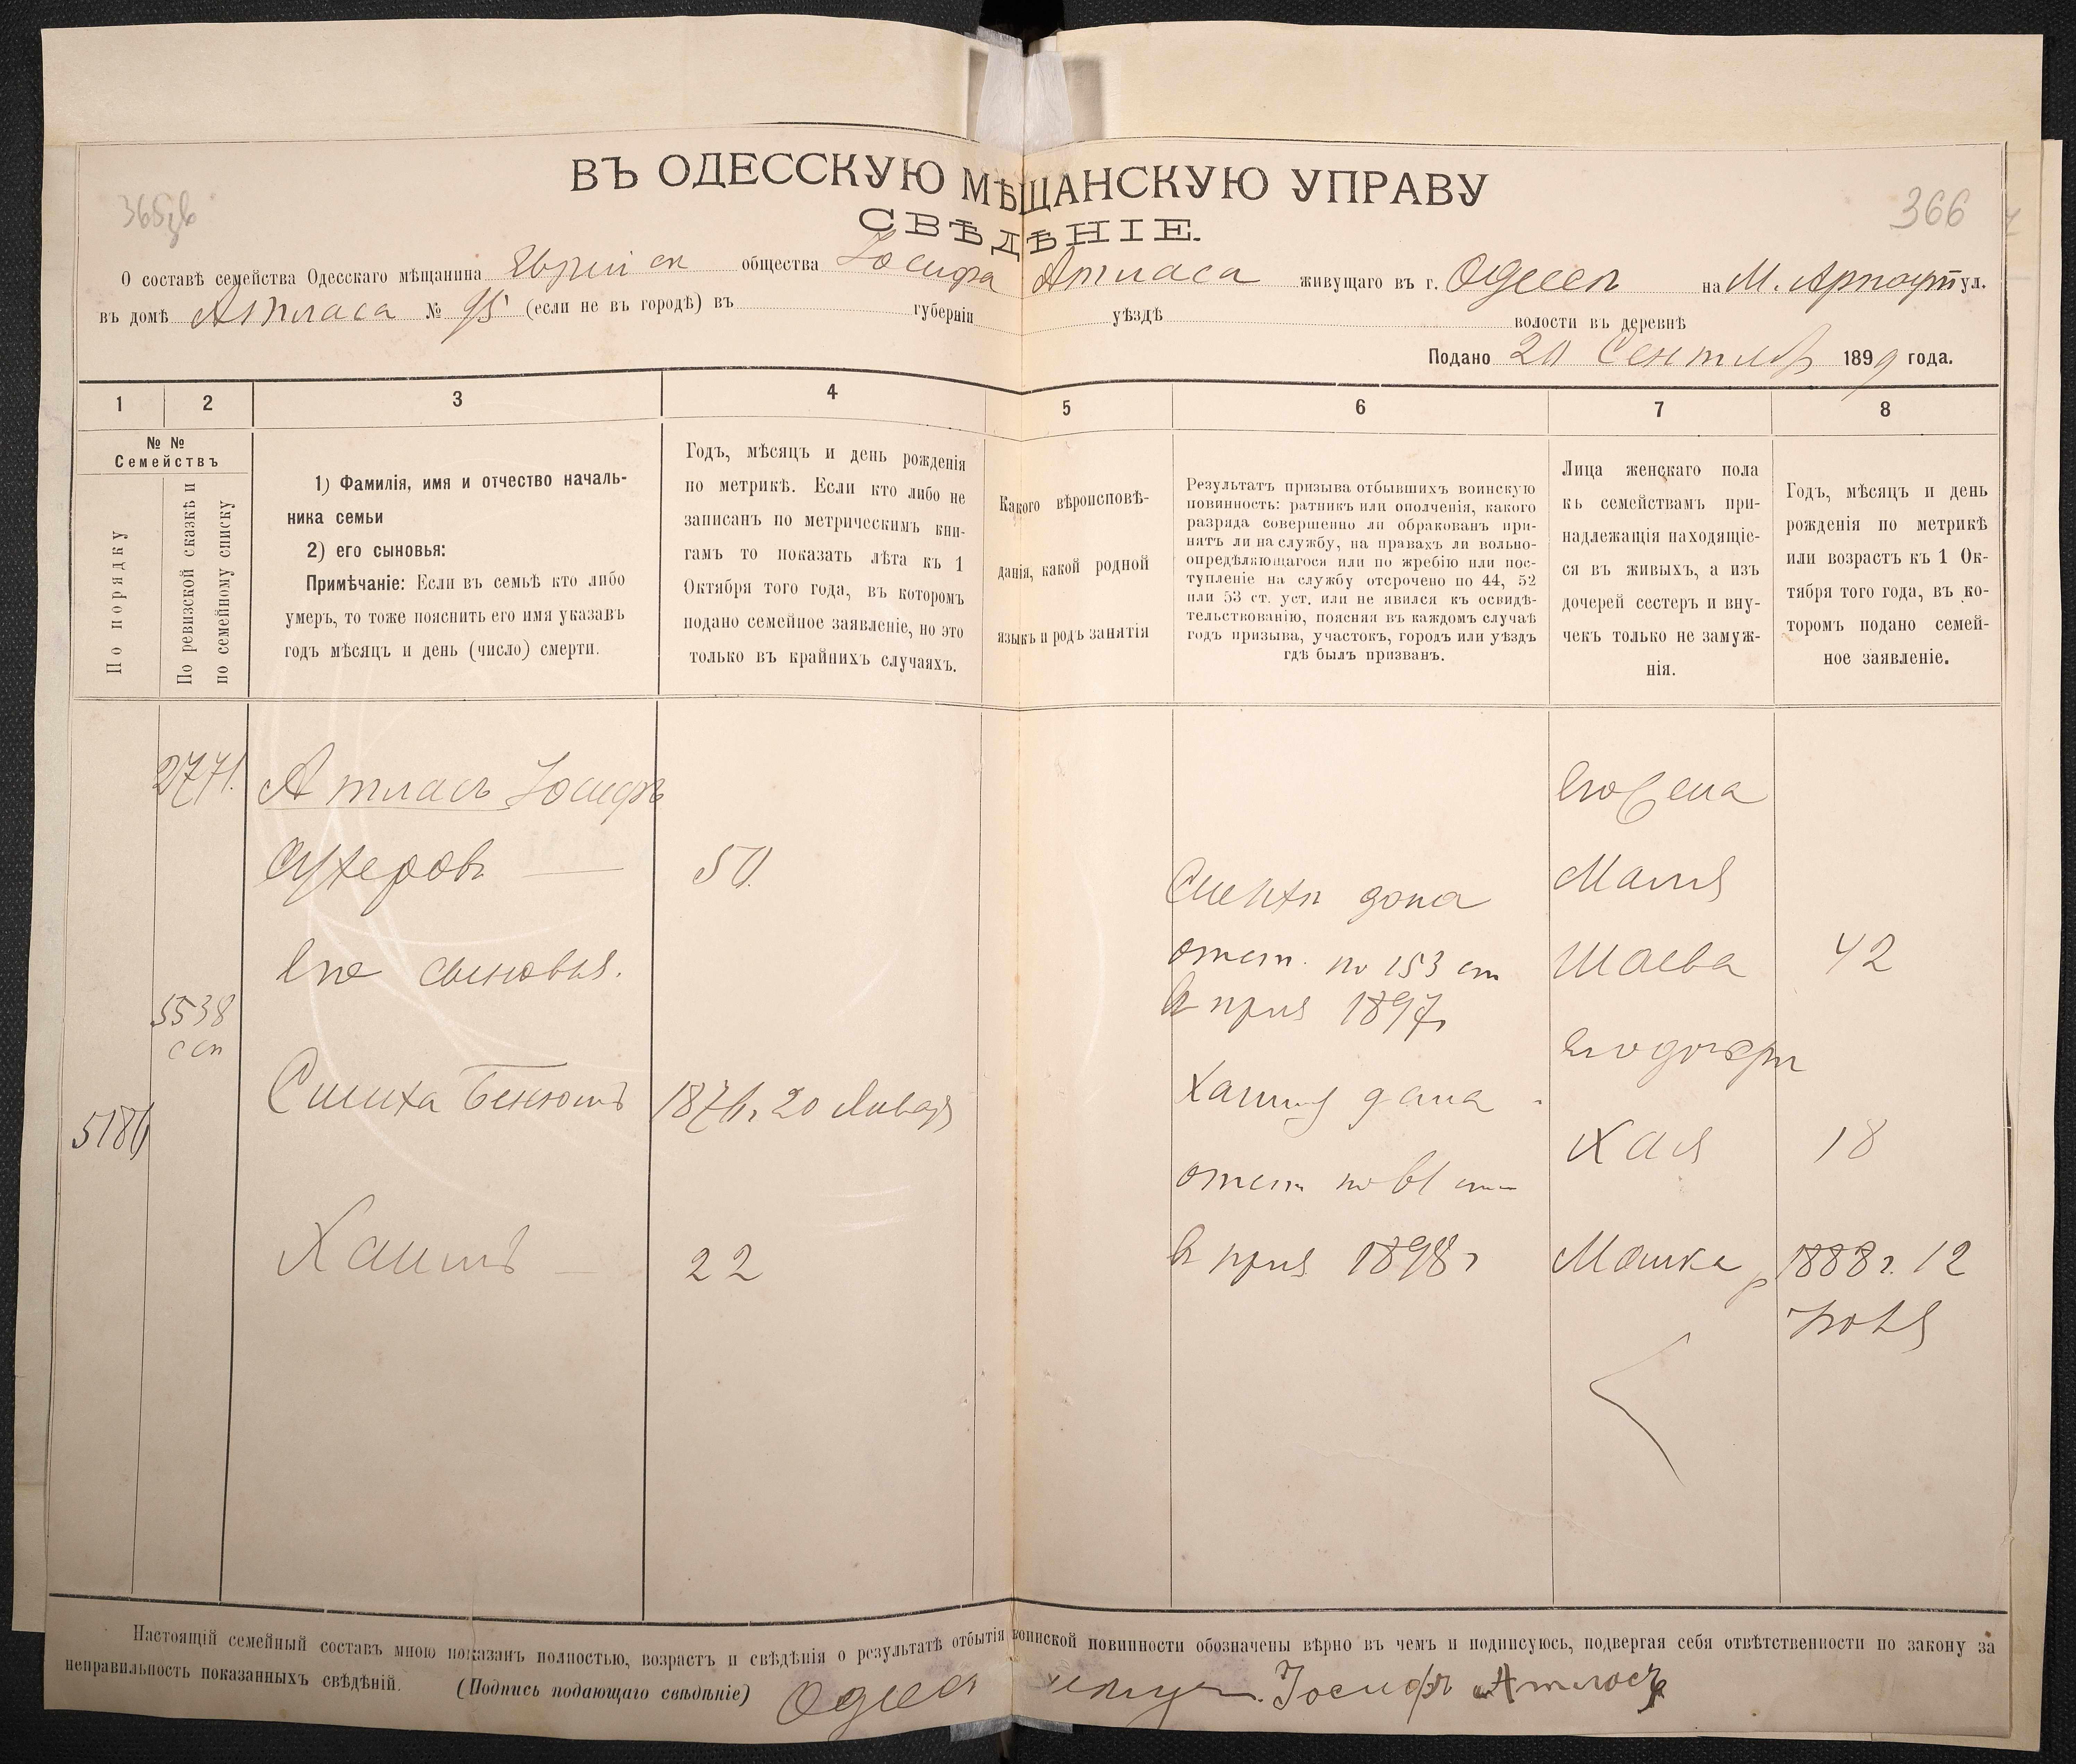 ВЪ ОДЕССКУЮ МѢЩАНСКУЮ УПРАВУ
СВѢДѢНІЕ.
366
О составѣ семейства Одесскаго мѣщанина общества Іосифа Атласа живущаго въ г. Одессѣ на М. Арнаут ул.
въ домѣ Атласа № 95 (если не въ городѣ) въ губерніи уѣздѣ волости въ деревнѣ
Подано 20 Сентябр 1899 года.
1 2 3 4 5 6 7 8
№ №
Семействъ
По порядку
По ревизской сказкѣ и
по семейному списку
1) Фамилія, имя и отчество началь-
ника семьи
2) его сыновья:
Примѣчаніе: Если въ семьѣ кто либо
умеръ, то тоже пояснить его имя указавъ
годъ мѣсяцъ и день (число) смерти.
Годъ, мѣсяцъ и день рожденія
по метрикѣ. Если кто либо не
записанъ по метрическимъ кни-
гамъ то показать лѣта къ 1
Октября того года, въ которомъ
подано семейное заявленіе, но это
только въ крайнихъ случаяхъ.
Какого вѣроисповѣ-
данія, какой родной
языкъ и родъ занятія
Результатъ призыва отбывшихъ воинскую
повинность: ратникъ или ополченія, какого
разряда совершенно ли обракованъ при-
нятъ ли на службу, на правахъ ли вольно-
опредѣляющагося или по жребію или пос-
тупленіе на службу отсрочено по 44, 52
или 53 ст. уст. или не явился къ освидѣ-
тельствованію, поясняя въ каждомъ случаѣ
годъ призыва, участокъ, городъ или уѣздъ
гдѣ былъ призванъ.
Лица женскаго пола
къ семействамъ при-
надлежащія находящіе-
ся въ живыхъ, а изъ
дочерей сестеръ и вну-
чекъ только не замуж-
нія.
Годъ, мѣсяцъ и день
рожденія по метрикѣ
или возрастъ къ 1 Ок-
тября того года, въ ко-
торомъ подано семей-
ное заявленіе.
2771. Атласъ Іосифъ
Сухеровъ 50.
его сыновья.
5538
Симха Бенюмъ 20 Января
Хаимъ 22
153 ст
в приз 1897г
Хаимъ дана
в приз 1898г
его жена
Маля
Шаева 42
его дочери
Хая 18
Машка р 1888 г. 12
Настоящій семейный составъ мною показанъ полностью, возрастъ и свѣдѣнія о результатѣ отбытія воинской повинности обозначены вѣрно въ чемъ и подписуюсь, подвергая себя отвѣтственности по закону за
неправильность показанныхъ свѣдѣній. (Подпись подающаго свѣдѣніе) Іосифъ Атласъ